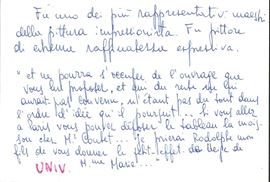 Fu uno dei più rappresentativi maestri
della pittura impressionista. Fu pittore
di estrema raffinatezza espressiva.
"et ne pourra s'occuper de l'ouvrage que
vous lui proposer, et qui du reste ne lui
aurait pas convenu, n'étant pas du tout dans
l'ordre d'idée qu'il poursuit... Si vous allez
à Paris vous pouvez déposer le tableau
chez Mr
fils de vous donner le petit effet de
UNIV. M.me Marie..."